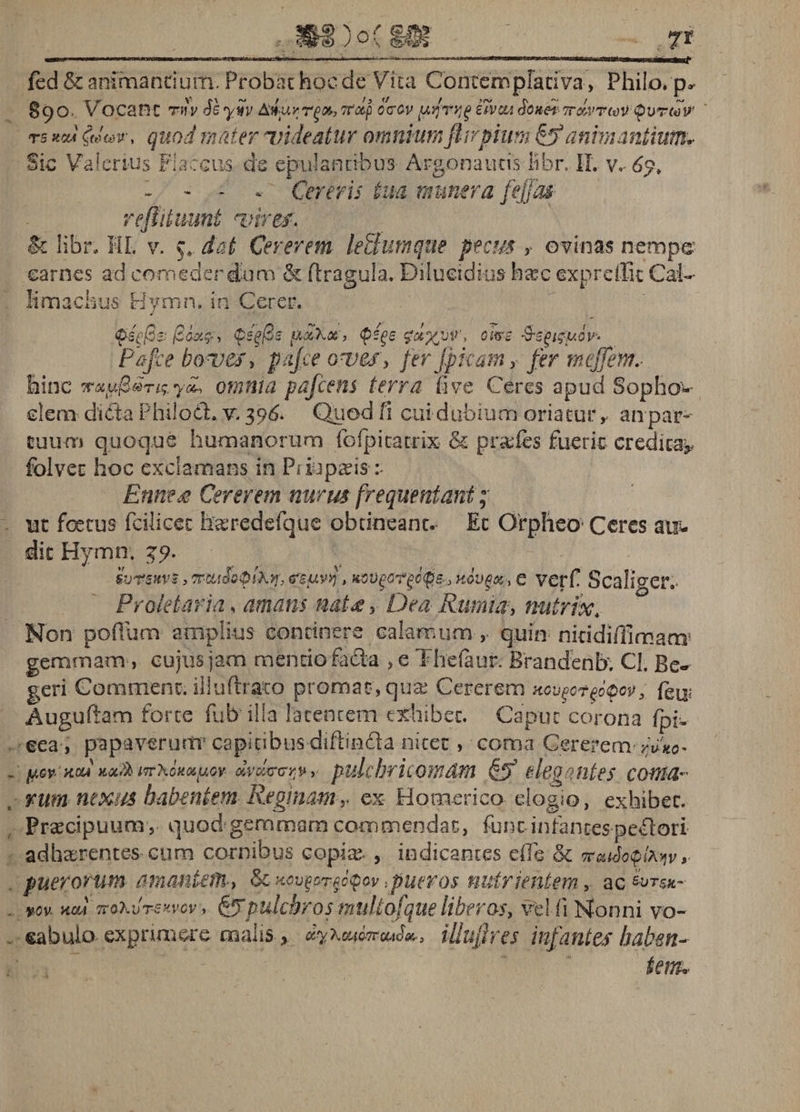 )o( 71
sed & animantium. Probat hoc de Vita Contemplativa, Philo. p.
890. Vocant τὴν δὲ γῆν Δήμητρα, παρ ὅσον μήτηρ εἶναι δοκεῖ πάντων φυτῶν
τε καὶ ζώων, quod mater videatur omnium stirpium & animantium.
Sic Valerius Flaccus de epulantibus Argonautis libr. II. v. 69,
- - - - Cereris tua munera fessas
restituunt vires.
& libr. III. v. 5. dat Cererem lectumque pecus, ovinas nempe
carnes ad comederdum & stragula. Dilucidius hæc expressit Cal-
limachus Hymn. in Cerer.
Φέρβε βόας, φέρβε μᾶλα, φέρε ϛάχυν, οἶσε θερισμόν.
Pasce boves, pasce oves, fer spicam, fer messem.
hinc παμβῶτις γᾶ, omnia pascens terra sive Ceres apud Sopho-
clem dicta Philoct. v. 396. Quod si cui dubium oriatur, an par-
tuum quoque humanorum sospitatrix & præses fuerit credita,
solvet hoc exclamans in Priapæis:
Enneæ Cererem nurus frequentant;
ut fœtus scilicet hæredesque obtineant. Et Orpheo Ceres au-
dit Hymn. 39.
εὐτέκνε, παιδοφίλη, σεμνή, κουροτρόφε, κόυρα, e vers. Scaliger.
Proletaria, amans natæ, Dea Rumia, nutrix.
Non possum amplius continere calamum, quin nitidissimam
gemmam, cujus jam mentio facta, e Thesaur. Brandenb. Cl. Be-
geri Comment. illustrato promat, quæ Cererem κουροτρόφον, seu
Augustam forte sub illa latentem exhibet. Caput corona spi-
cea, papaverum capitibus distincta nitet, coma Cererem ἠύκο-
μον καὶ καλλιπλόκαμον ἀνάσσην, pulchricomam & elegantes coma-
rum nexus habentem Reginam, ex Homerico elogio, exhibet.
Præcipuum, quod gemmam commendat, sunt infantes pectori
adhærentes cum cornibus copiæ, indicantes esse & παιδοφίλην,
puerorum amantem, & κουροτρόφον pueros nutrientem, ac εὐτεκ-
νον καὶ πολύτεκνον, & pulchros multosque liberos, vel si Nonni vo-
cabulo exprimere malis, ἀγλαόπαιδα, illustres infantes haben-
tem.